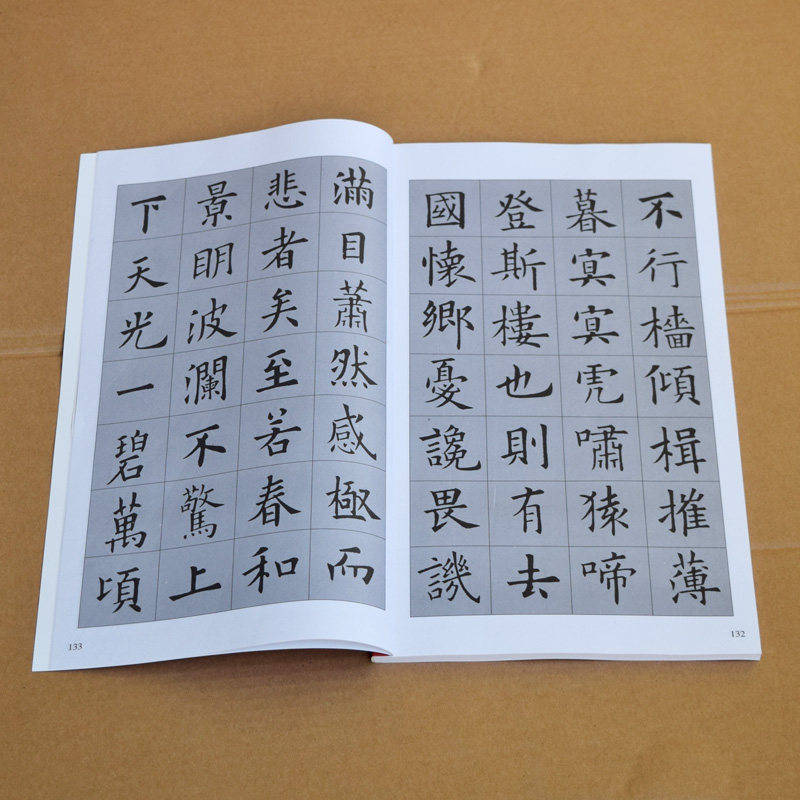 不行檣傾楫摧薄
暮冥冥虎嘯猿啼
登斯樓也則有去
國懷鄉憂讒畏譏
132
滿目蕭然感極而
悲者矣至若春和
景明波瀾不驚上
下天光一碧萬頃
133